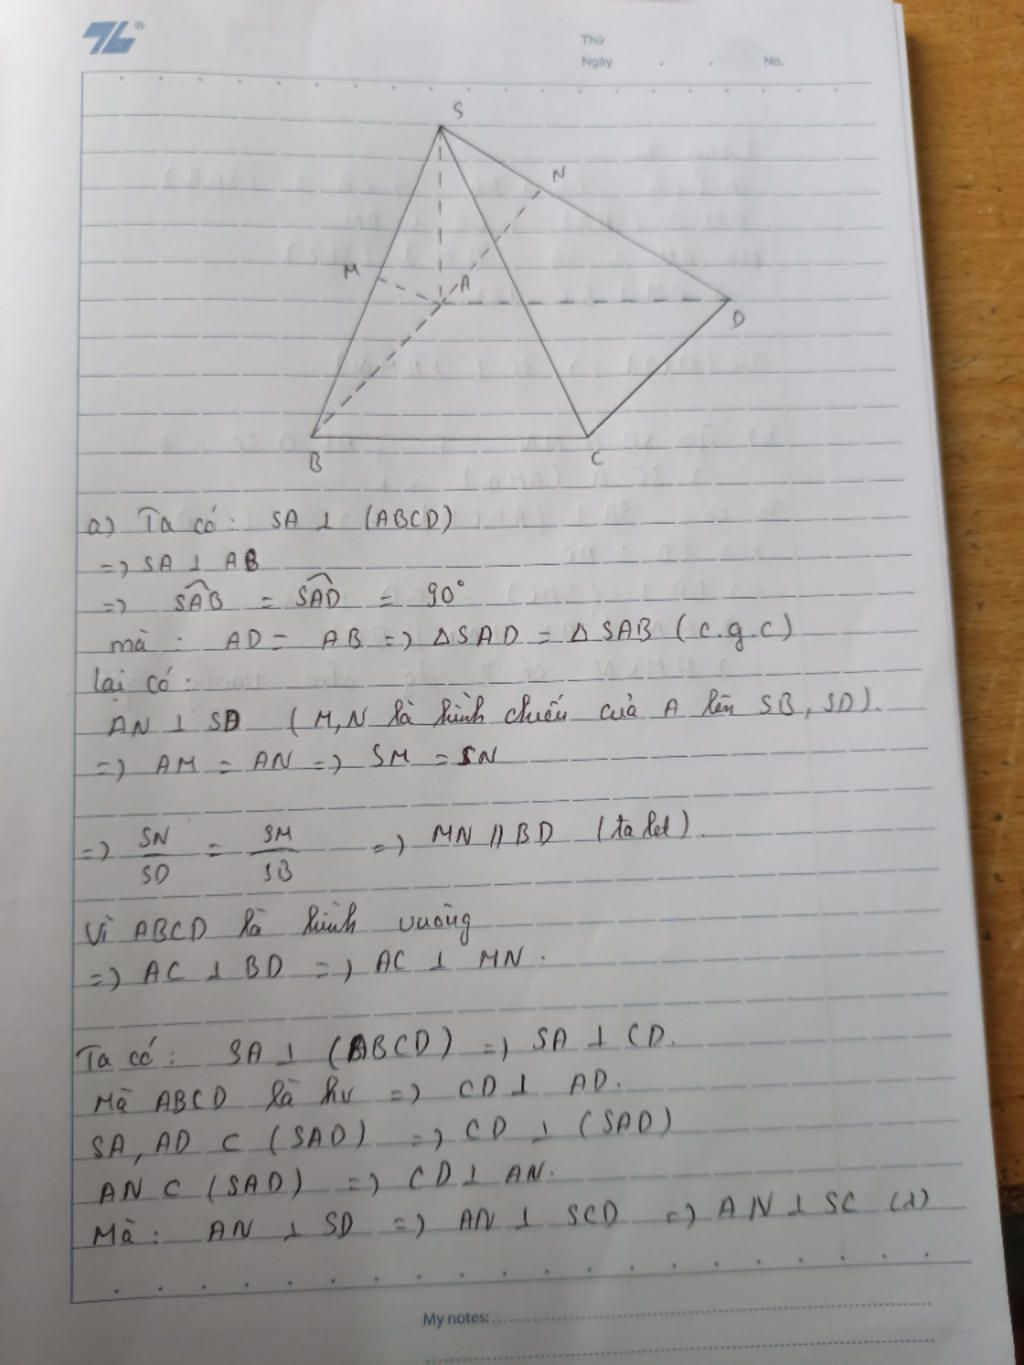 Thứ
Ngày . . No.
S
N
M
A
D
B
C
a) Ta có: SA ⊥ (ABCD)
=> SA ⊥ AB
=> SAB = SAD = 90°
mà: AD = AB => ΔSAD = ΔSAB (c.g.c)
lại có:
AN ⊥ SD (M,N là hình chiếu của A lên SB, SD).
=> AM = AN => SM = SN
=> SN/SD = SM/SB => MN // BD (ta let).
Vì ABCD là hình vuông
=> AC ⊥ BD => AC ⊥ MN.
Ta có: SA ⊥ (ABCD) => SA ⊥ CD.
Mà ABCD là hv => CD ⊥ AD.
SA, AD ⊂ (SAD) => CD ⊥ (SAD)
AN ⊂ (SAD) => CD ⊥ AN.
Mà: AN ⊥ SD => AN ⊥ SCD => AN ⊥ SC (1)
My notes: